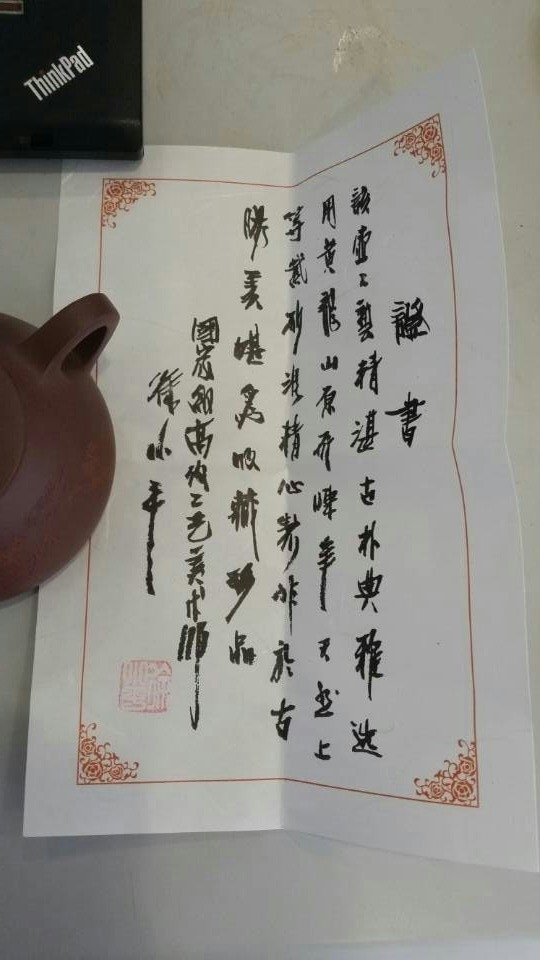 ThinkPad
證書
該壺工藝精湛古朴典雅選
用黄龍山原礦陳年天然上
等紫砂泥精心製作於古
美堪為收藏珍品
國家級高級工艺美术師
小平